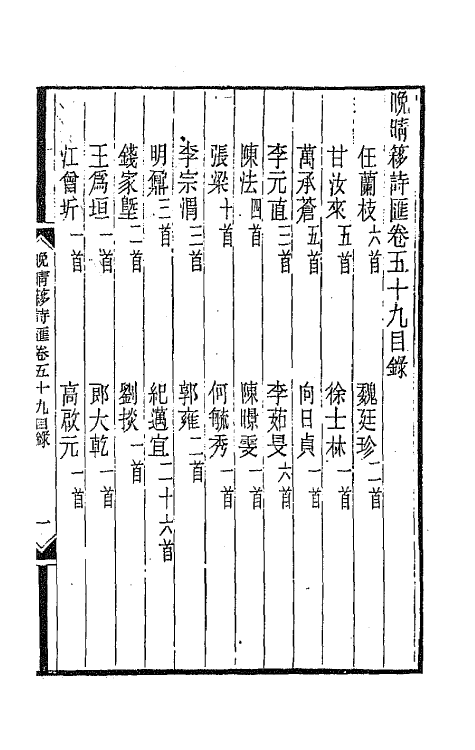 晩晴簃詩匯卷五十九目錄
任蘭枝六首　魏廷珍二首
甘汝來五首　徐士林一首
萬承蒼五首　向日貞一首
李元直三首　李茹旻六首
陳法四首　陳㬙雯一首
張梁十首　何毓秀一首
李宗渭三首　郭雍二首
明鼐三首　紀邁宜二十六首
錢家塈二首　劉掞一首
王爲垣一首　郎大乾一首
江曾圻一首　高啟元一首
晩晴簃詩匯卷五十九目錄　一